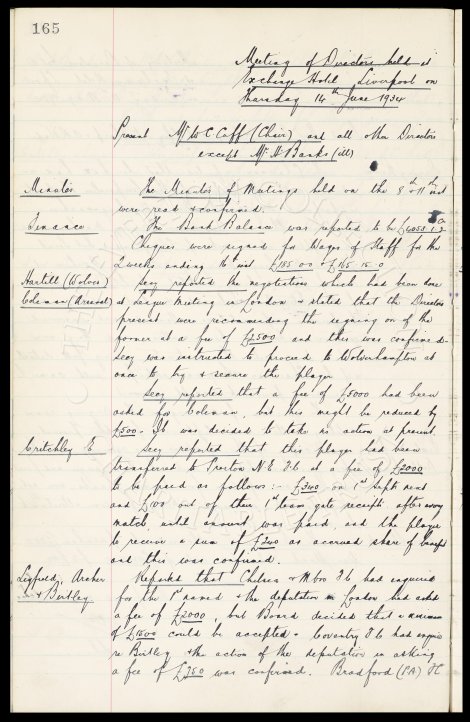 165
Meeting of Directors held at
Exchange Hotel, Liverpool on
Thursday 14th June 1934
Present Mr W C Cuff (Chair) and all other Directors
except Mr H Banks (ill)
Minutes The Minutes of Meetings held on the 8th & 11th inst
were read & confirmed.
Finance The Bank Balance was reported to be
Cheques were signed for Wages of Staff for the
2 weeks ending inst £185
Hartill (Wolves) Secy reported the negotiations which had been done
Coleman (Arsenal) at League Meeting in London & stated that the Directors
present were recommending the signing on of the
former at a fee of £2500 and this was confirmed.
Secy was instructed to proceed to Wolverhampton at
once to try & secure the player
Secy reported that a fee of £5000 had been
asked for Coleman, but this might be reduced by
£500. It was decided to take no action at present.
Critchley E Secy reported that this player had been
transferred to Preston N E F.C at a fee of £2000
to be paid as follows:- on 1st Septr next
and £100 out of their 1st team gate receipts after every
match, until amount was paid, and the player
to receive a sum of as accrued share of benefit
and this was confirmed.
Archer Reported that Chelsea & Mbro F.C had enquired
& Birtley for the 1st named & the deputation in London had asked
a fee of £2000, but Board decided that a minimum
of £1500 could be accepted. Coventry F.C had
re Birtley & the action of the deputation in asking
a fee of £750 was confirmed. Bradford (PA) FC